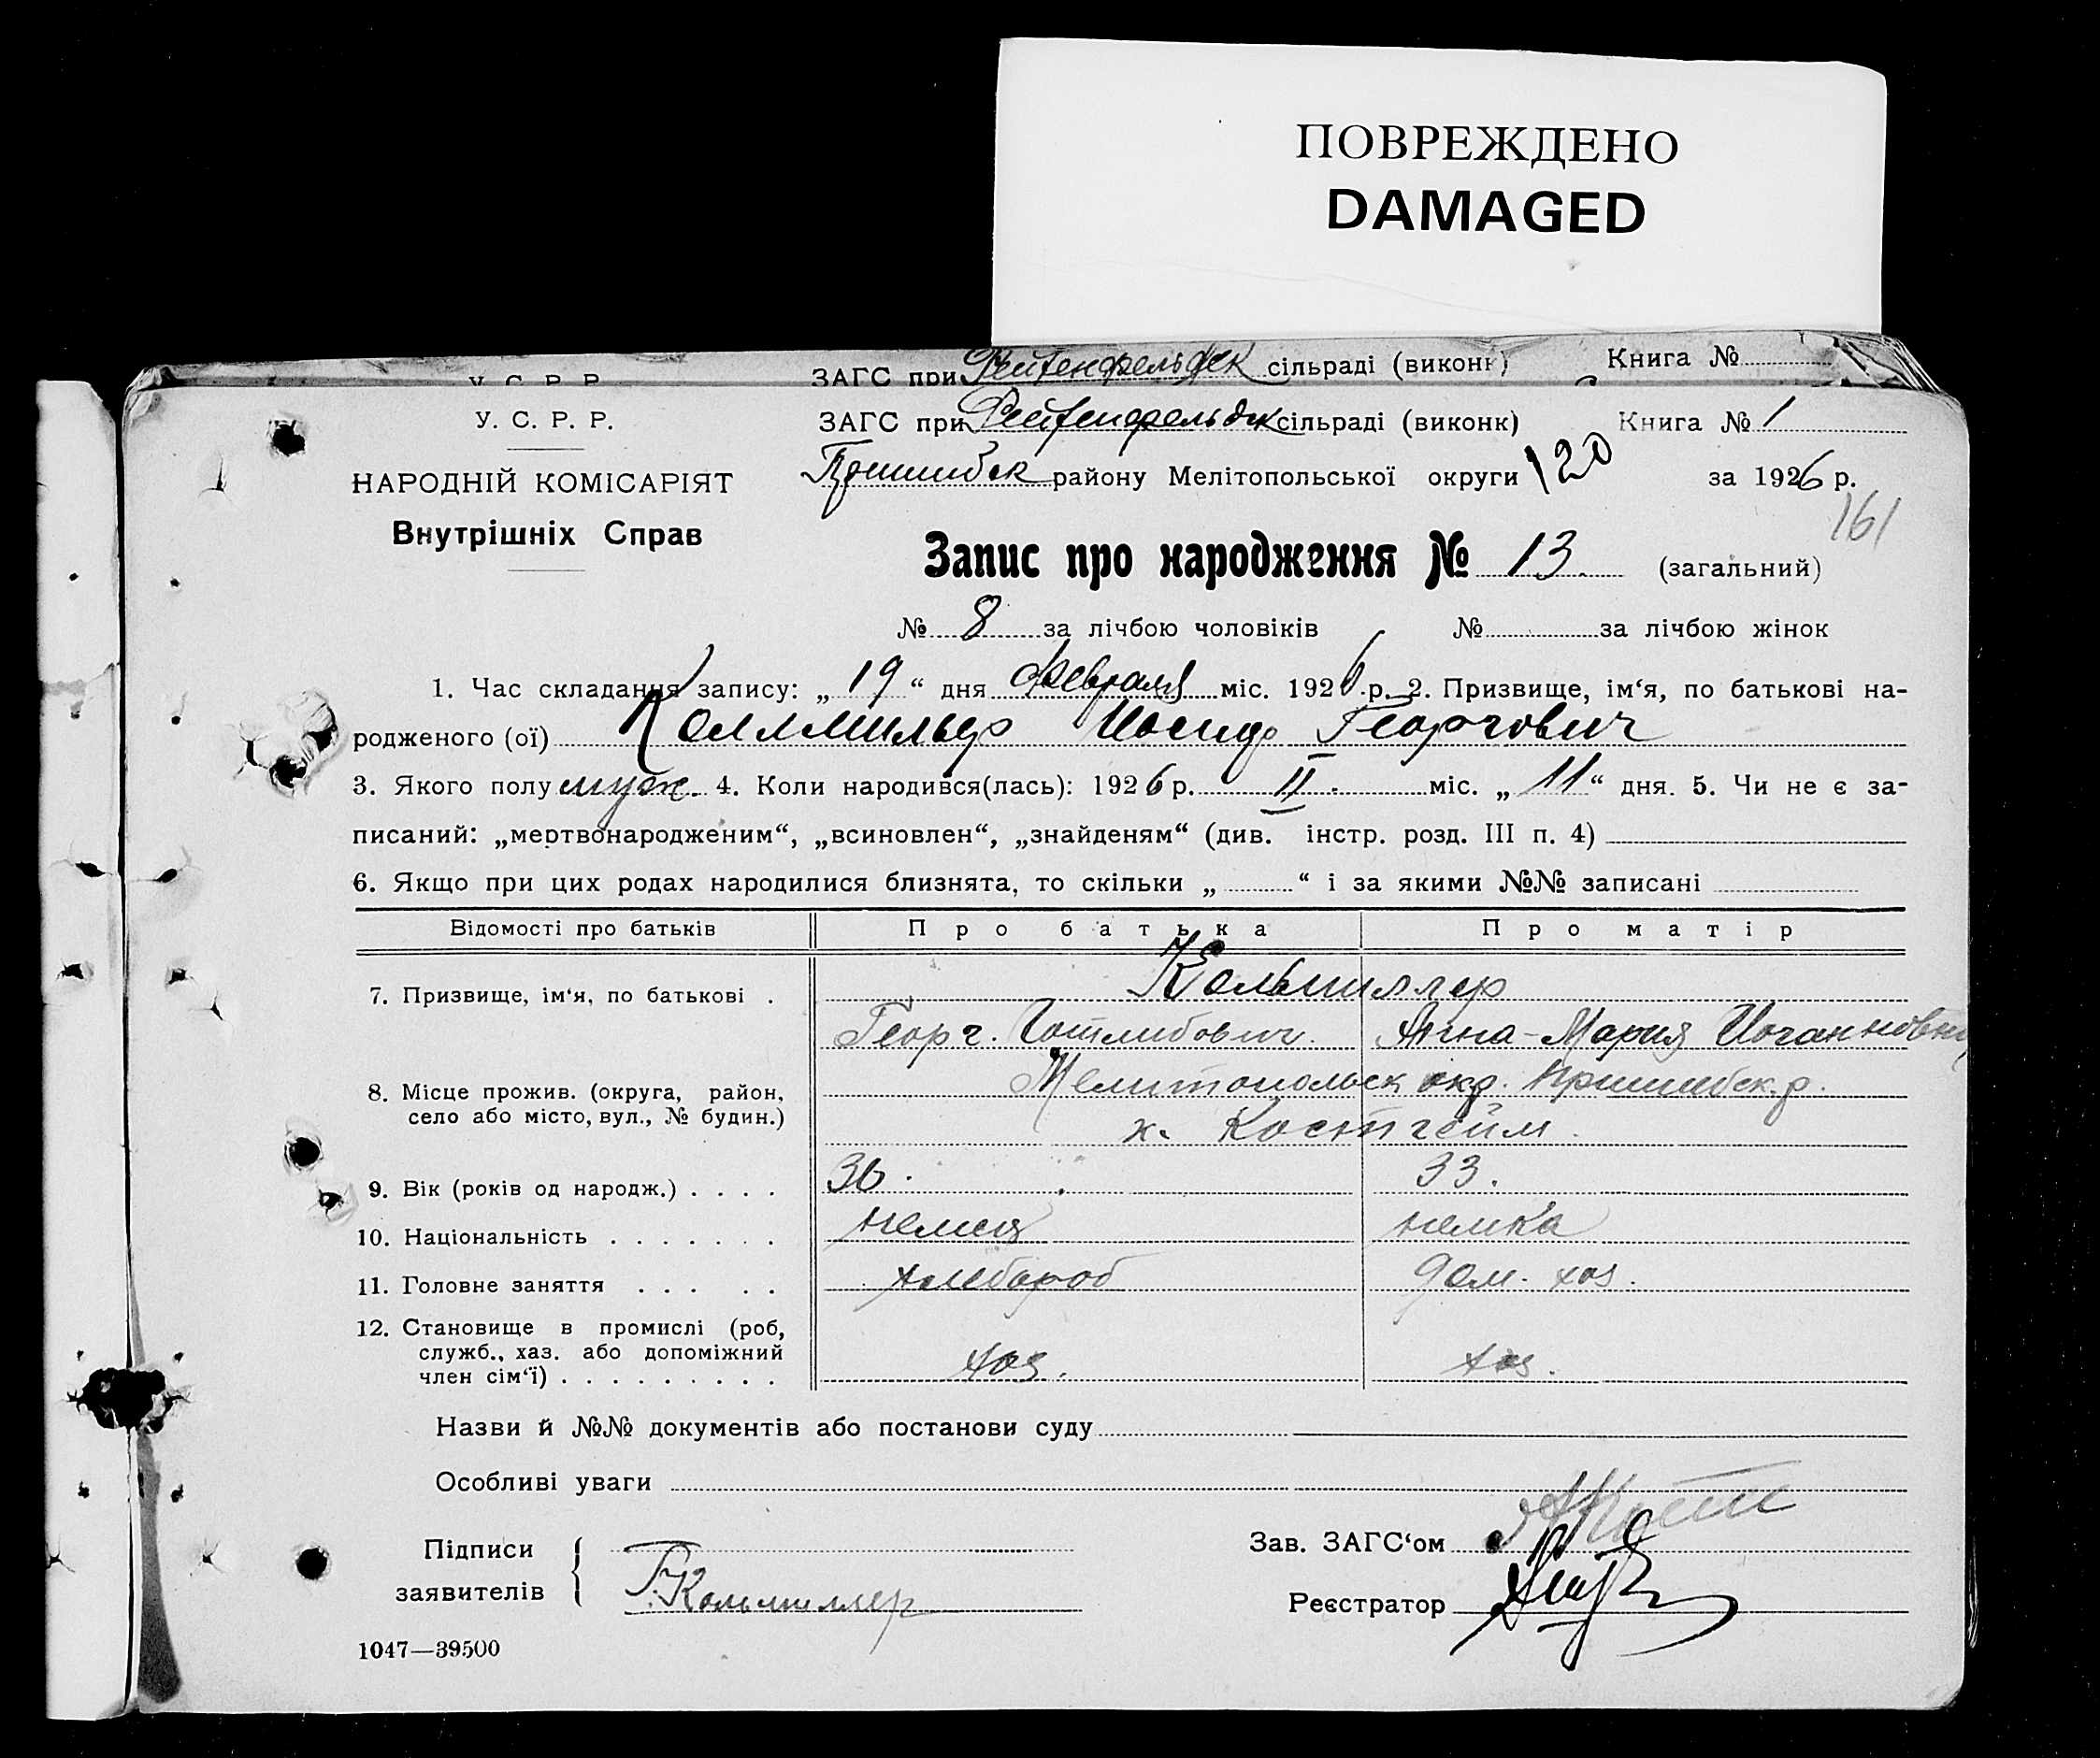 ПОВРЕЖДЕНО
DAMAGED
У. С. Р. Р. ЗАГС при Рейтенфельдск сільраді (виконк) Книга №
У. С. Р. Р. ЗАГС при Рейтенфельдск сільраді (виконк) Книга № 1
Пришибск району Мелітопольської округи 120 за 1926 р.
161
НАРОДНІЙ КОМІСАРІЯТ
Внутрішніх Справ
Запис про народження № 13. (загальний)
№ 8 за лічбою чоловіків № за лічбою жінок
1. Час складання запису: „ 19 “ дня Февраля міс. 1926 р. 2. Призвище, ім‘я, по батькові на-
родженого (ої) Коллмильер Иосиф Георгович
3. Якого полу муж. 4. Коли народився(лась): 1926 р. II. міс. „ 11 “ дня. 5. Чи не є за-
писаний: „мертвонародженим“, „всиновлен“, „знайденям“ (див. інстр. розд. III п. 4)
6. Якщо при цих родах народилися близнята, то скільки „ “ і за якими №№ записані
Відомості про батьків Про батька Про матір
7. Призвище, ім‘я, по батькові . Кольмиллер
Георг. Готлибович. Анна-Мария Иоганновна
8. Місце прожив. (округа, район, село або місто, вул., № будин.) Мелитопольск окр. Пришибск. р.
х. Костгейм.
9. Вік (років од народж.) . . . . 36. 33.
10. Національність . . . . . . . немец немка
11. Головне заняття . . . . . хлебороб дом. хоз.
12. Становище в промислі (роб,
служб., хаз. або допоміжний
член сім‘ї) . . . . . . . . . хоз. хоз.
Назви й №№ документів або постанови суду
Особливі уваги
Підписи
заявителів Г. Кольмиллер
Зав. ЗАГС‘ом
Реєстратор
1047—39500